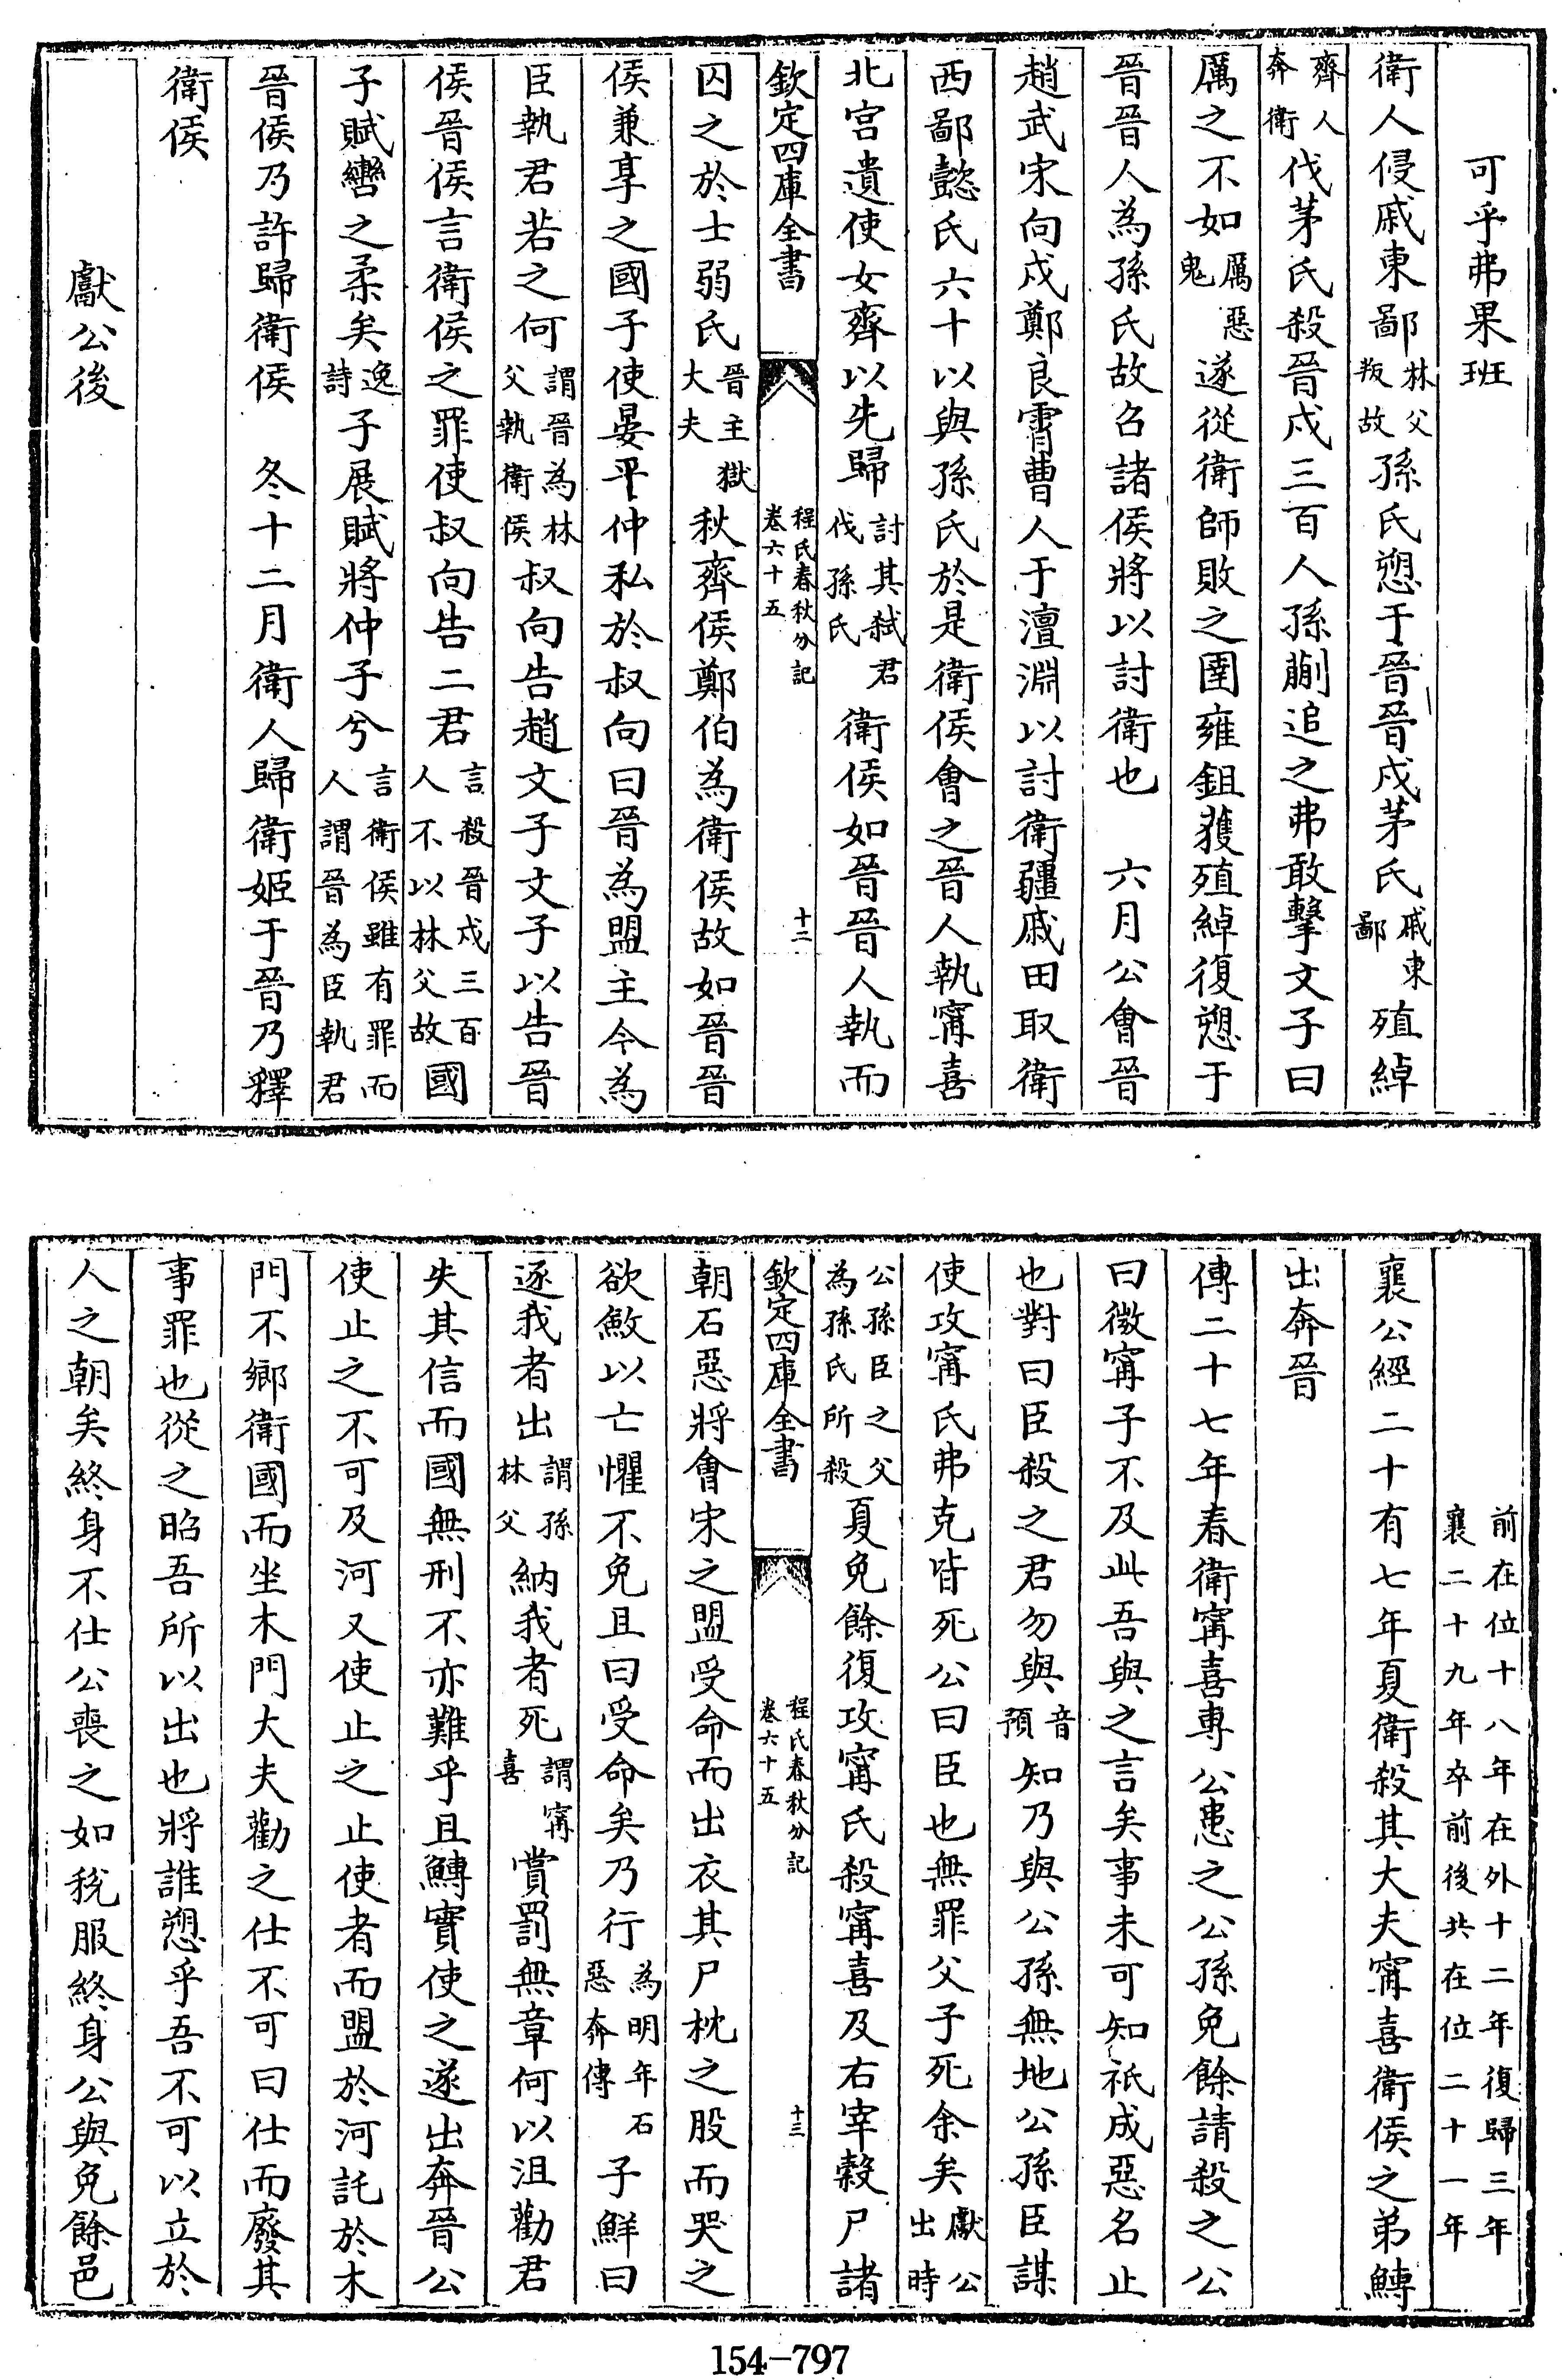 可乎弗果班
衛人侵戚東鄙林父叛故孫氏愬于晉晉戍茅氏戚東鄙殖綽
齊人奔衛伐茅氏殺晉戍三百人孫蒯追之弗敢擊文子曰
厲之不如厲惡鬼遂從衛師敗之圉雍鉏獲殖綽復愬于
晉晉人為孫氏故召諸侯將以討衛也　六月公會晉
趙武宋向戍鄭良霄曹人于澶淵以討衛疆戚田取衛
西鄙懿氏六十以與孫氏於是衛侯會之晉人執甯喜
北宮遺使女齊以先歸討其弑君伐孫氏衛侯如晉晉人執而
欽定四庫全書　程氏春秋分記卷六十五　十二
囚之於士弱氏晉主獄大夫秋齊侯鄭伯為衛侯故如晉晉
侯兼享之國子使晏平仲私於叔向曰晉為盟主今為
臣執君若之何謂晉為林父執衛侯叔向告趙文子文子以告晉
侯晉侯言衛侯之罪使叔向告二君言殺晉戍三百人不以林父故國
子賦轡之柔矣逸詩子展賦將仲子兮言衛侯雖有罪而人謂晉為臣執君
晉侯乃許歸衛侯　冬十二月衛人歸衛姬于晉乃釋
衛侯
獻公後
前在位十八年在外十二年復歸三年襄二十九年卒前後共在位二十一年
襄公經二十有七年夏衛殺其大夫甯喜衛侯之弟鱄
出奔晉
傳二十七年春衛甯喜專公患之公孫免餘請殺之公
曰微甯子不及此吾與之言矣事未可知祇成惡名止
也對曰臣殺之君勿與音預知乃與公孫無地公孫臣謀
使攻甯氏弗克皆死公曰臣也無罪父子死余矣獻公出時
公孫臣之父為孫氏所殺夏免餘復攻甯氏殺甯喜及右宰穀尸諸
欽定四庫全書　程氏春秋分記卷六十五　十三
朝石惡將會宋之盟受命而出衣其尸枕之股而哭之
欲斂以亡懼不免且曰受命矣乃行為明年石惡奔傳子鮮曰
逐我者出謂孫林父納我者死謂甯喜賞罰無章何以沮勸君
失其信而國無刑不亦難乎且鱄實使之遂出奔晉公
使止之不可及河又使止之止使者而盟於河託於木
門不鄉衛國而坐木門大夫勸之仕不可曰仕而廢其
事罪也從之昭吾所以出也將誰愬乎吾不可以立於
人之朝矣終身不仕公喪之如稅服終身公與免餘邑
154-797